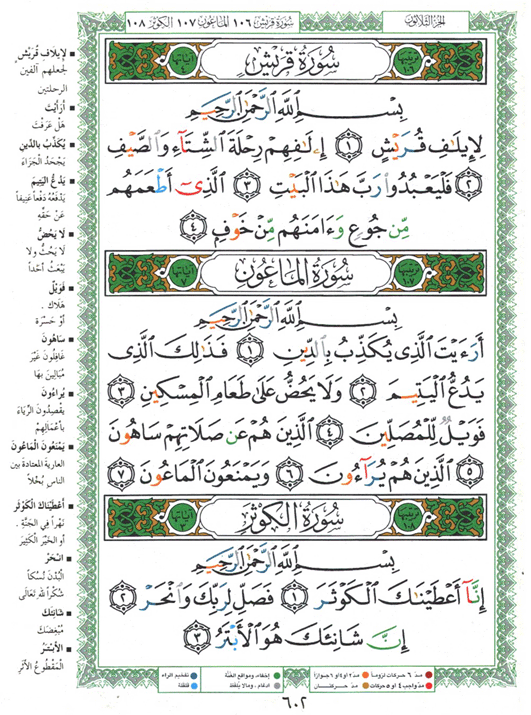 سُورَةُ قُرَيْشٍ ١٠٦ المَاعُونِ ١٠٧ الكَوْثَرِ ١٠٨
الجزء الثلاثون
سُورَةُ قُرَيْشٍ
ترتيبها ١٠٦
آياتها ٤
بِسْمِ ٱللَّهِ ٱلرَّحْمَٰنِ ٱلرَّحِيمِ
لِإِيلَٰفِ قُرَيْشٍ ١ إِۦلَٰفِهِمْ رِحْلَةَ ٱلشِّتَآءِ وَٱلصَّيْفِ
٢ فَلْيَعْبُدُوا۟ رَبَّ هَٰذَا ٱلْبَيْتِ ٣ ٱلَّذِىٓ أَطْعَمَهُم
مِّن جُوعٍ وَءَامَنَهُم مِّنْ خَوْفٍۭ ٤
سُورَةُ المَاعُونِ
ترتيبها ١٠٧
آياتها ٧
بِسْمِ ٱللَّهِ ٱلرَّحْمَٰنِ ٱلرَّحِيمِ
أَرَءَيْتَ ٱلَّذِى يُكَذِّبُ بِٱلدِّينِ ١ فَذَٰلِكَ ٱلَّذِى
يَدُعُّ ٱلْيَتِيمَ ٢ وَلَا يَحُضُّ عَلَىٰ طَعَامِ ٱلْمِسْكِينِ ٣
فَوَيْلٌ لِّلْمُصَلِّينَ ٤ ٱلَّذِينَ هُمْ عَن صَلَاتِهِمْ سَاهُونَ
٥ ٱلَّذِينَ هُمْ يُرَآءُونَ ٦ وَيَمْنَعُونَ ٱلْمَاعُونَ ٧
سُورَةُ الكَوْثَرِ
ترتيبها ١٠٨
آياتها ٣
بِسْمِ ٱللَّهِ ٱلرَّحْمَٰنِ ٱلرَّحِيمِ
إِنَّآ أَعْطَيْنَٰكَ ٱلْكَوْثَرَ ١ فَصَلِّ لِرَبِّكَ وَٱنْحَرْ ٢
إِنَّ شَانِئَكَ هُوَ ٱلْأَبْتَرُ ٣
■ لِإِيلَافِ قُرَيْشٍ
لجعلهم آلفين
الرحلتين
■ أَرَأَيْتَ
هَلْ عَرَفْتَ
■ يُكَذِّبُ بالدِّينِ
يَجْحَدُ الجَزَاءَ
■ يَدُعُّ اليَتِيمَ
يَدْفَعُهُ دَفْعاً عَنِيفاً
عَنْ حَقِّهِ
■ لَا يَحُضُّ
لَا يَحُثُّ ولا
يَبْعَثُ أَحَداً
■ فَوَيْلٌ
هَلَاكٌ
أَوْ حَسْرَة
■ سَاهُونَ
غَافِلُونَ غَيْرُ
مُبَالِينَ بِهَا
■ يُرَاءُونَ
يقصِدُونَ الرِّيَاءَ
بِأَعْمَالِهِمْ
■ يَمْنَعُونَ المَاعُونَ
العارية المعتادة بين
الناس بُخْلاً
■ أَعْطَيْنَاكَ الكَوْثَرَ
نَهْراً فِي الجَنَّةِ
أو الخَيْرَ الكَثِيرَ
■ انْحَرْ
البُدْنَ نُسُكاً
شُكْراً للهِ تَعَالَى
■ شَانِئَكَ
مُبْغِضَكَ
■ الأَبْتَرُ
المَقْطُوعُ الأَثَرِ
مدّ ٦ حركات لزوماً
مدّ ٢ أو ٤ أو ٦ جوازاً
إخفاء، ومواقع الغُنَّة
تفخيم الراء
مدّ واجب ٤ أو ٥ حركات
مدّ حركتان
ادغام، ومالا يُلفَظ
قلقلة
٦٠٢